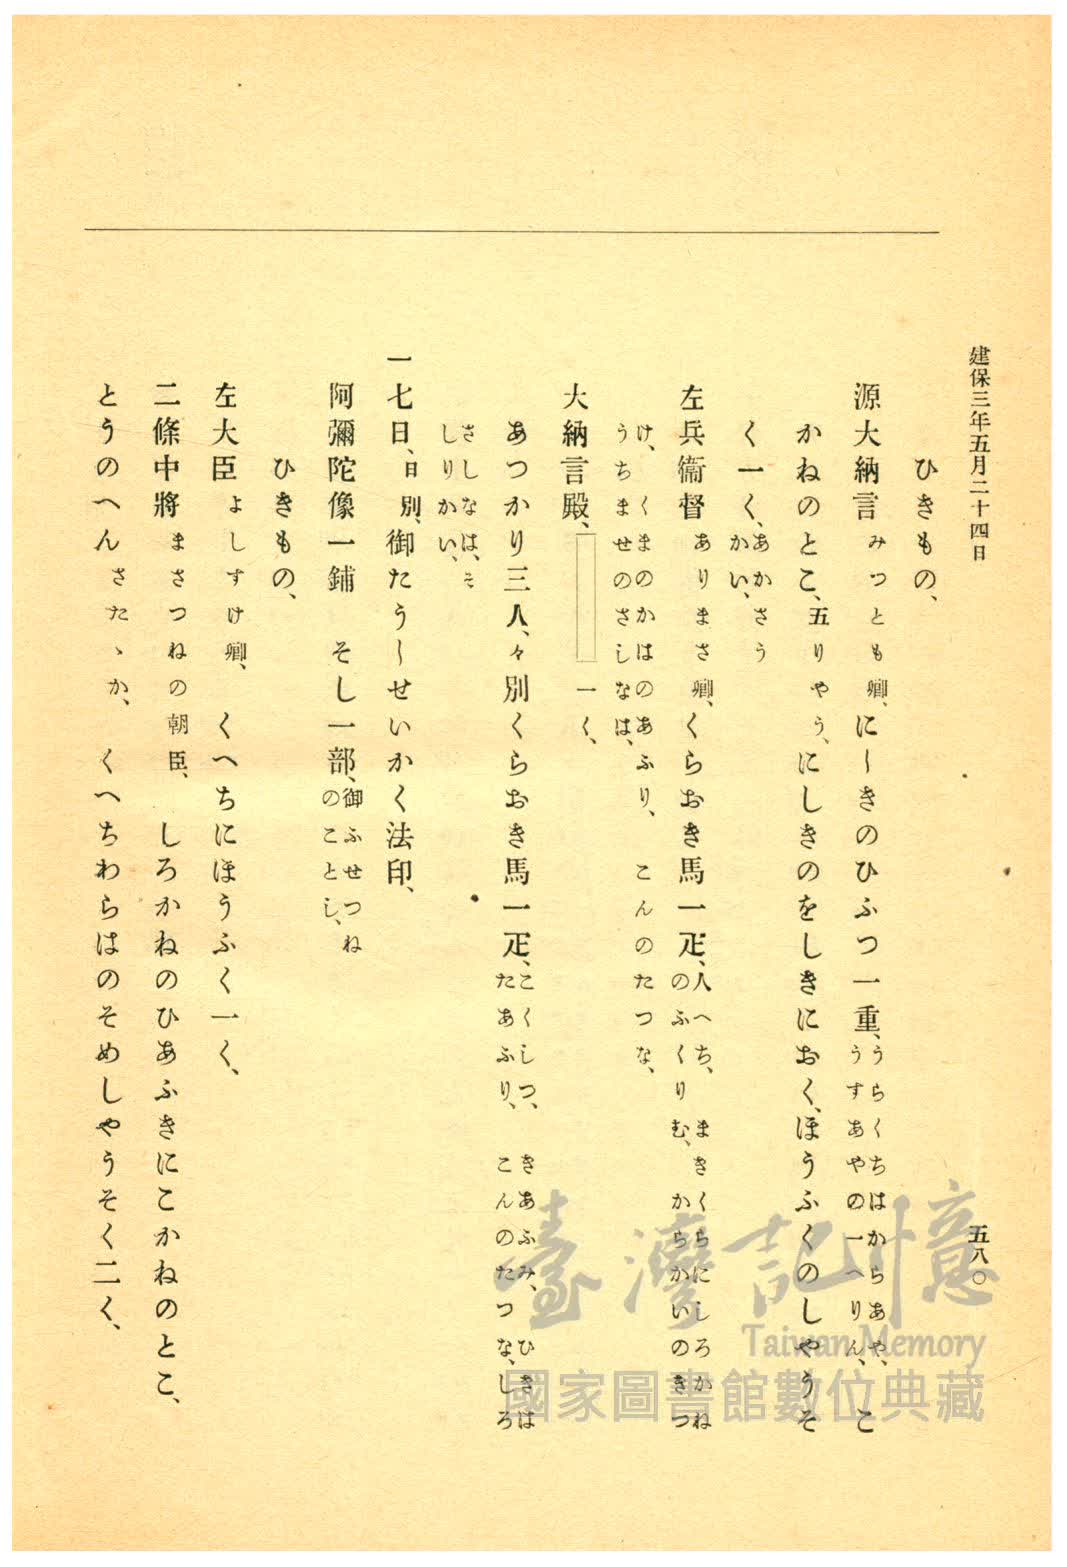 建保三年五月二十四日
五八〇
ひきもの、
源大納言みつとも卿、にしきのひふつ一重、うらくちはからあや、うすあやの一へりん、こ
かねのとこ、五りやう、にしきのをしきにおく、ほうふくのしやうそ
く一く、あかさうかい、
左兵衞督ありまさ卿、くらおき馬一疋、人へち、まきくらにしろかねのふくりむ、からかいのきつ
け、くまのかはのあふり、こんのたつな、うちませのさしなは、
大納言殿、一く、
あつかり三人、々別くらおき馬一疋、こくしつ、きあふみ、ひきはたあふり、こんのたつな、しろ
さしなは、そしりかい、
一七日、日別、御たうしせいかく法印、
阿彌陀像一鋪 そし一部、御ふせつねのことし、
ひきもの、
左大臣よしすけ卿、くへちにほうふく一く、
二條中將まさつねの朝臣、しろかねのひあふきにこかねのとこ、
とうのへんさたゝか、くへちわらはのそめしやうそく二く、
臺灣記憶
Taiwan Memory
國家圖書館數位典藏